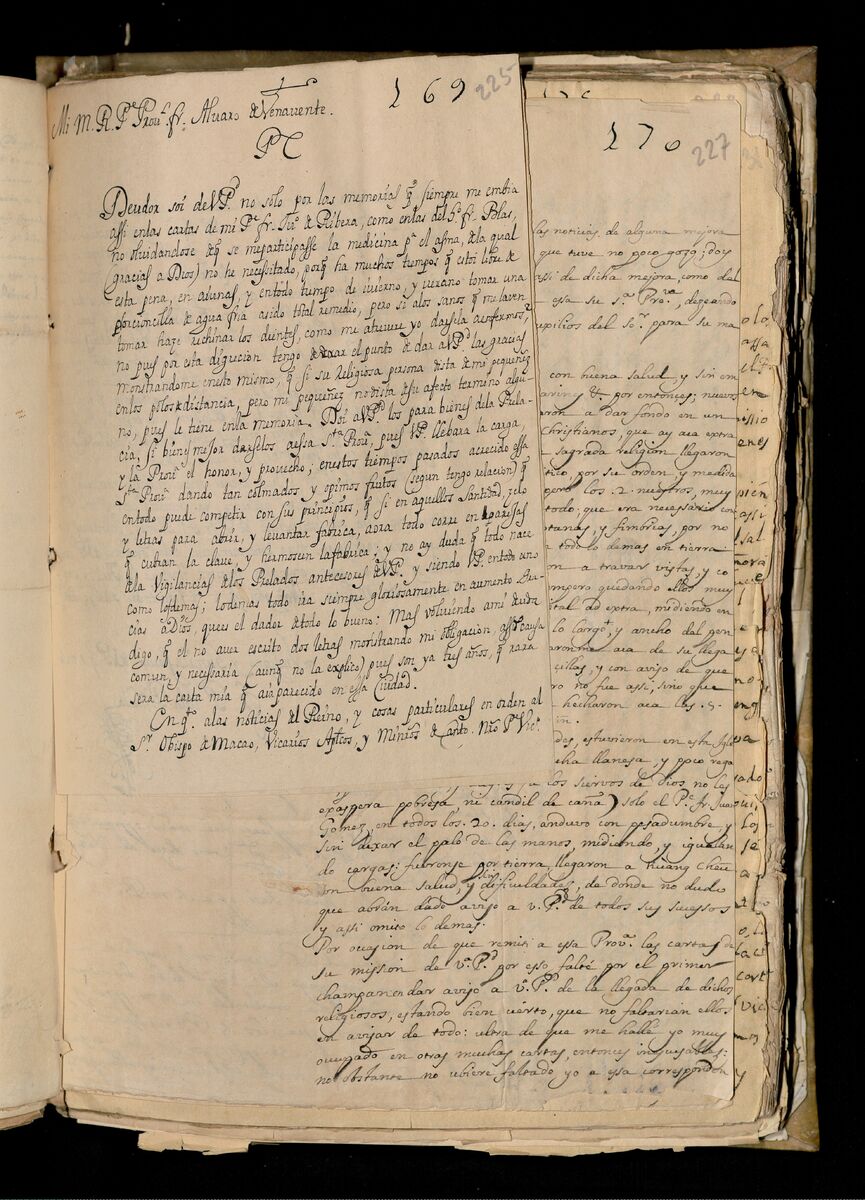 169 225
Mi M.R.Pe Prouˡ. fr. Aluaro de Venauente.
PC
Deudor soi de VPᵈ no solo por las memorias q̃ siempre me embia
assi en las cartas de mi Pᵉ fr. Juº de Ribera, como en las del hº fr. Blas,
no oluidandose de q̃ se me participasse la medicina pª el asma, de la qual
(gracias a Dios) no he necesitado, porq̃ ha muchos tiempos q̃ estoi libre de
esta pena, en aiunas, y en todo tiempo de iuierno, y uerano tomar una
porcioncilla de agua fria a sido total remedio, pero si a los sanos q̃ me la ven
tomar haze rechinar los dientes, como me atreuere yo darsela a enfermos?
no pues por esta digrecion tengo de dexar el punto de dar a VPᵈ las gracias
monstrandome en esto mismo, q̃ si su Religiosa persona dista de mi pequeñez
en los polos de distancia, pero mi pequeñez no dista de su afecto termino algu-
no, pues le tiene en la memoria. Doi a VPᵈ los para bienes de la Prela-
cia, si bien mejor darselos a essa Sᵗᵃ Prouª, pues VP. llebara la carga,
y la Prouª el honor, y prouecho; en estos tiempos pasados a crecido essa
Sᵗᵃ Prouª dando tan colmados y opimos frutos (segun tengo relacion) q̃
en todo puede competir con sus principios, q̃ si en aquellos Santidad, zelo
y letras para abrir, y leuantar fabrica, aora todo corre en parejas
q̃ cubran la claue, y hermoseen la fabrica; y no ay duda q̃ todo nace
de la Vigilancias de los Prelados antecesores de VPᵈ y siendo VP. en todo uno
como los demas; lo demas todo ira siempre gloriosamente en aumento gra-
cias a Dios, que es el dador de todo lo bueno: Mas voluiendo a mi deuda
digo, q̃ el no auer escrito dos letras mostrando mi obligacion, a sido causa
comun, y necessaria (aunq̃ no la explico) pues son ya tres años, q̃ rara
sera la carta mia q̃ aia parecido en essa Ciudad.
En qᵗº a las noticias del Reino, y cosas particulares en orden al
Sʳ. Obispo de Macao, Vicarios Apᵗcos, y Minros de Canto. Nro Pᵉ Vicº
170 227
las noticias de alguna mejora
que tuve no poco gozo; doy
assi de dicha mejora, como del
essa su Sª Provª, dejeando
upilios del Seʳ. para su ma
con buena salud, y sin em
por entonces; nuevos
eron a dar fondo en un
christianos, que ay aca extra
sagrada religion llegaron
tico, por su orden y medida
pero los 2 nuestros, muy
todo; que era necesario con
tanas, y fimbrias, por no
a todo lo demas en tierra
on a travar vistas, y co
mpero quedando ellos muy
ital ad extra, midiendo en
lo largo, y ancho del pen
aronme aca de su llega
cuilas, y con avijo de que
ro no fue assi, sino que
hecharon aca los 5.
in.
des, estuvieron en esta Igle
cha llanesa, y poco rega
a los siervos de Dios no les
exaspera pobresa ni candil de caña) solo el Pᵉ. fr. Juan
Gomez, en todos los 20. dias, anduvo con pesadumbre y
sin dexar el palo de las manos, midiendo, y igualan
do cargas: fueronse por tierra, llegaron a kuang cheu
con buena salud, y sin dificuldades, de donde no dudo
que abrán dado avijo a V.Pᵈ de todos sus sucessos
y assi omito lo demas.
Por ocasion de que remiti a essa Provª. las cartas de
su mission de Vª.Pᵈ por esso falté por el primer
champan en dar avijo a Vª.Pᵈ de la llegada de dichos
religiosos, estando bien cierto, que no faltarian ellos
en avisar de todo: ultra de que me hallé yo muy
ocupado en otras muchas cartas, entonces inescusables:
no obstante no ubiere faltado yo a essa correspondon